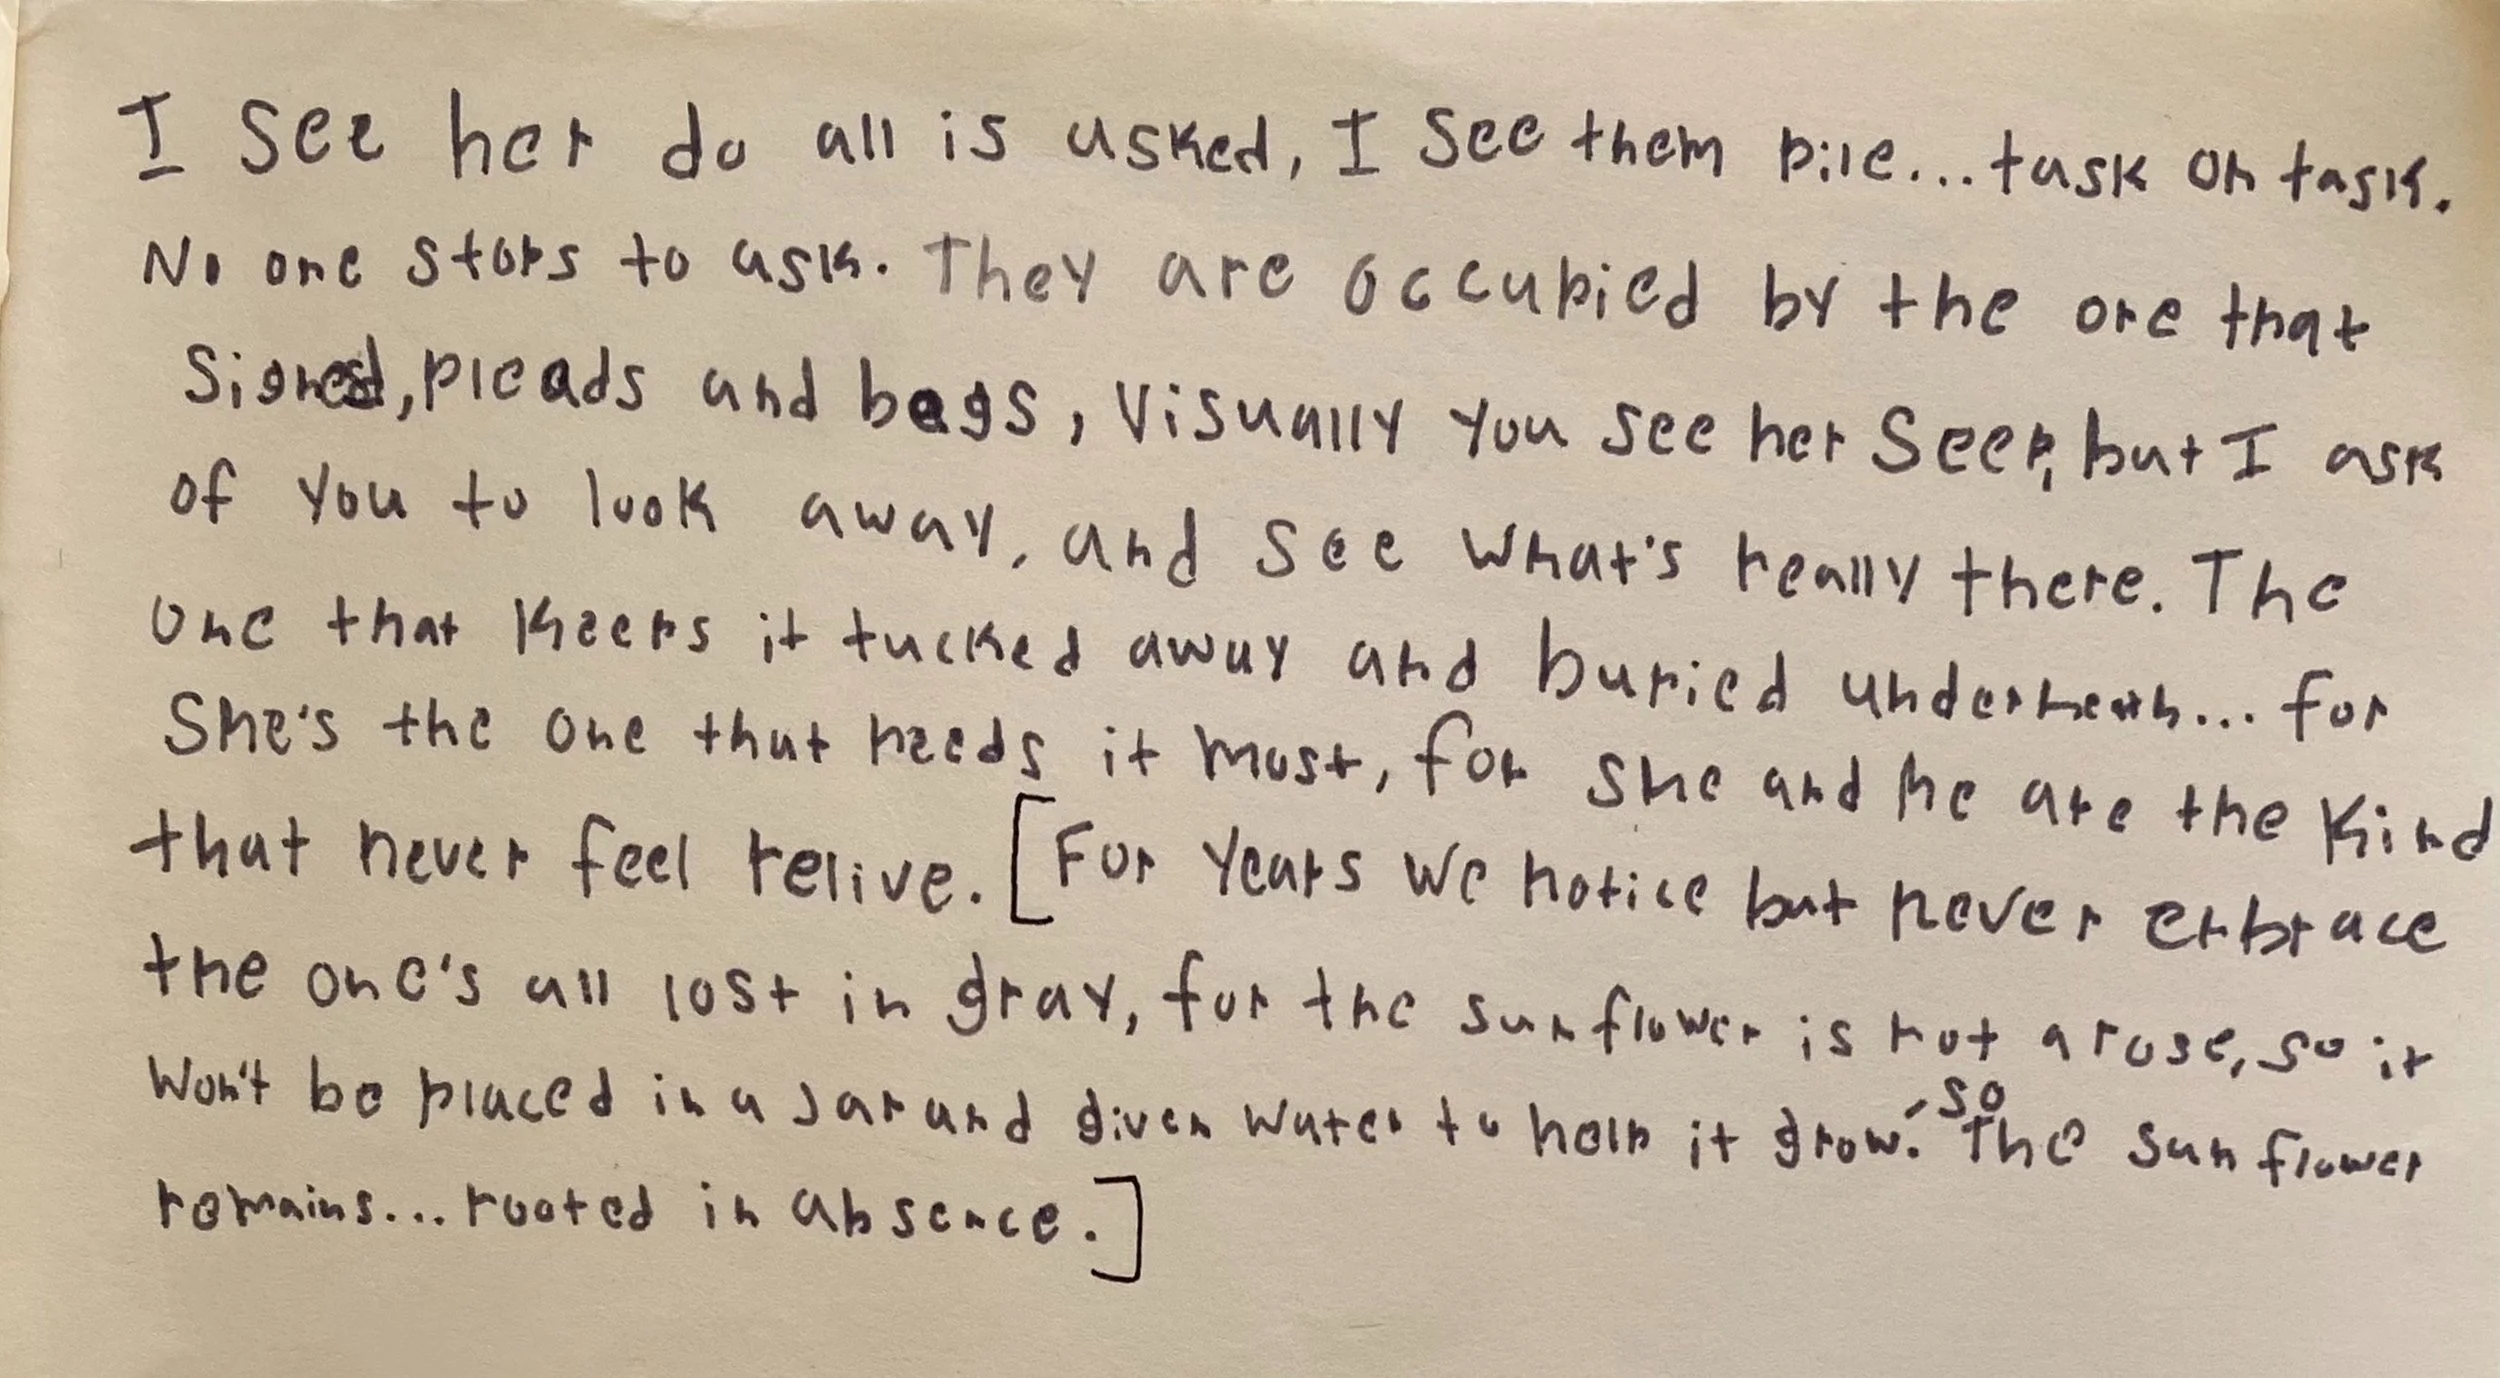 I see her do all is asked, I see them pile... task on task.
No one stops to ask. They are occupied by the one that
signed, pleads and begs, Visually you see her seep, but I ask
of you to look away, and see what's really there. The
one that keeps it tucked away and buried underneath... for
She's the one that needs it most, for she and he are the kind
that never feel relive. [For years we notice but never embrace
the one's all lost in gray, for the sunflower is not a rose, so it
won't be placed in a jar and given water to help it grow. - so The sunflower
remains... rooted in absence.]